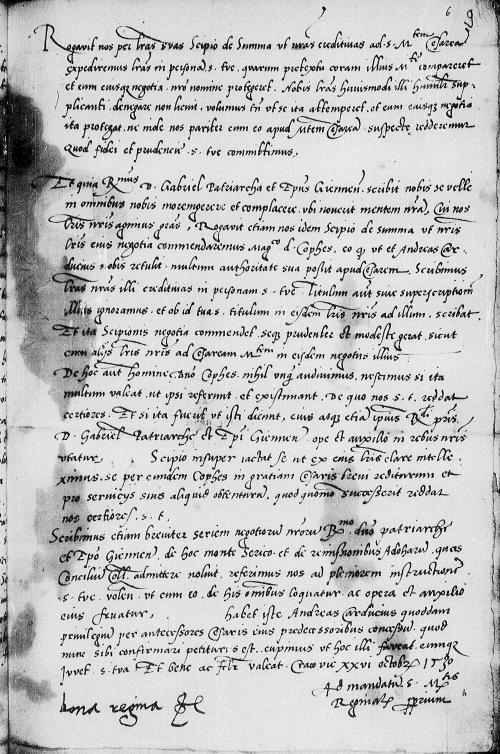 6
Rogavit nos per lras suas Scipio de Summa ut nras creditivas ad s. Mtem Cesarea
expediremus lras in persona s. tue, quarum pretextu coram illius Mte compareret
et eum eiusq negotia nro nomine protegeret. Nobis lras huiusmodi illi humilr sup-
plicanti denegare non licuit, volumus tn ut se ita attemperet, et eum eiusq negotia
ita protegat, ne inde nos pariter cum eo apud Mtem Cesarea suspecte redderemur
quod fidei et prudencie s. tue committimus.
Et quia Rmus D. Gabriel Patriarcha et Epus Giennen scribit nobis se velle
in omnibus nobis morem gerere et complacere, ubi noverit mentem nra, Cui nos
lris nris agimus gras, Rogavit etiam nos idem Scipio de summa ut nris
lris eius negotia commendaremus Magco d. Cophes, eo q, ut et Andreas Car-
ducius nobis retulit, multum authoritate sua possit apud Cesarem, Scribimus
lras nras illi creditivas in personam s. tue. Titulum aut sive superscriptionem
illius ignoramus, et ob id tua s. titulum in eisdem lris nris ad illum scribat.
Et ita Scipionis negotia commendet, seq prudenter et modeste gerat, sicut
cum alijs lris nris ad Cesaream Mtem in eisdem negotiis illius.
De hoc aut homine Dno Cophes nihil unq audivimus, nescimus si ita
multum valeat, ut ipsi referunt et existimant. De quo nos s. t. reddat
certiores. Et si ita fuerit, ut isti dicunt, eius atq etia ipsius Rdi pris
D. Gabriel Patriarche et Epi Giennen ope et auxilio in rebus nris
utatur. Scipio insuper iactat se ut ex eius lris clare intelle-
ximus, se per eundem Cophes in gratiam Cesaris brevi rediturum et
pro servicijs suis aliquid obtenturu, quod quomo successerit reddat
nos certiores s. t.
Scribimus etiam breviter seriem negotioru nroru Rmo dno patriarche
et Epo Giennen, de hoc monte Serico et de remissionibus Adohary, quas
Consiliu Coll. admittere noluit, referimus nos ad pleniorem instructione
s. tue, volen. ut cum eo de his omnibus loquatur, ac opera et auxilio
eius fruatur. Habet iste Andreas Carducius quoddam
privilegiu per antecessores Cesaris eius predecessoribus concessu, quod
nunc sibi confirmari petitur. s. est, cupimus ut hoc illi faveat, eumque
iuvet s. tua. Et bene ac felr valeat. Cracovie xxvi octobr
Ad mandatu s. Mtis
Reginal. pprium
bona regina